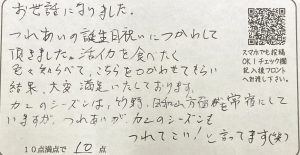 お世話になりました。
つれあいの誕生日祝いにつかわして
頂きました。活イカを食べたく
色々知らべて、こちらをつかわせてもらい
結果、大変満足いたしております。
カニのシーズンは、竹野、 を常宿にして
いますが、つれあいが、カニのシーズンも
つれてこい!と言ってます(笑)
10点満点で 10 点
スマホでも投稿
OK!チェック欄
記入後フロント
へお渡し下さい。